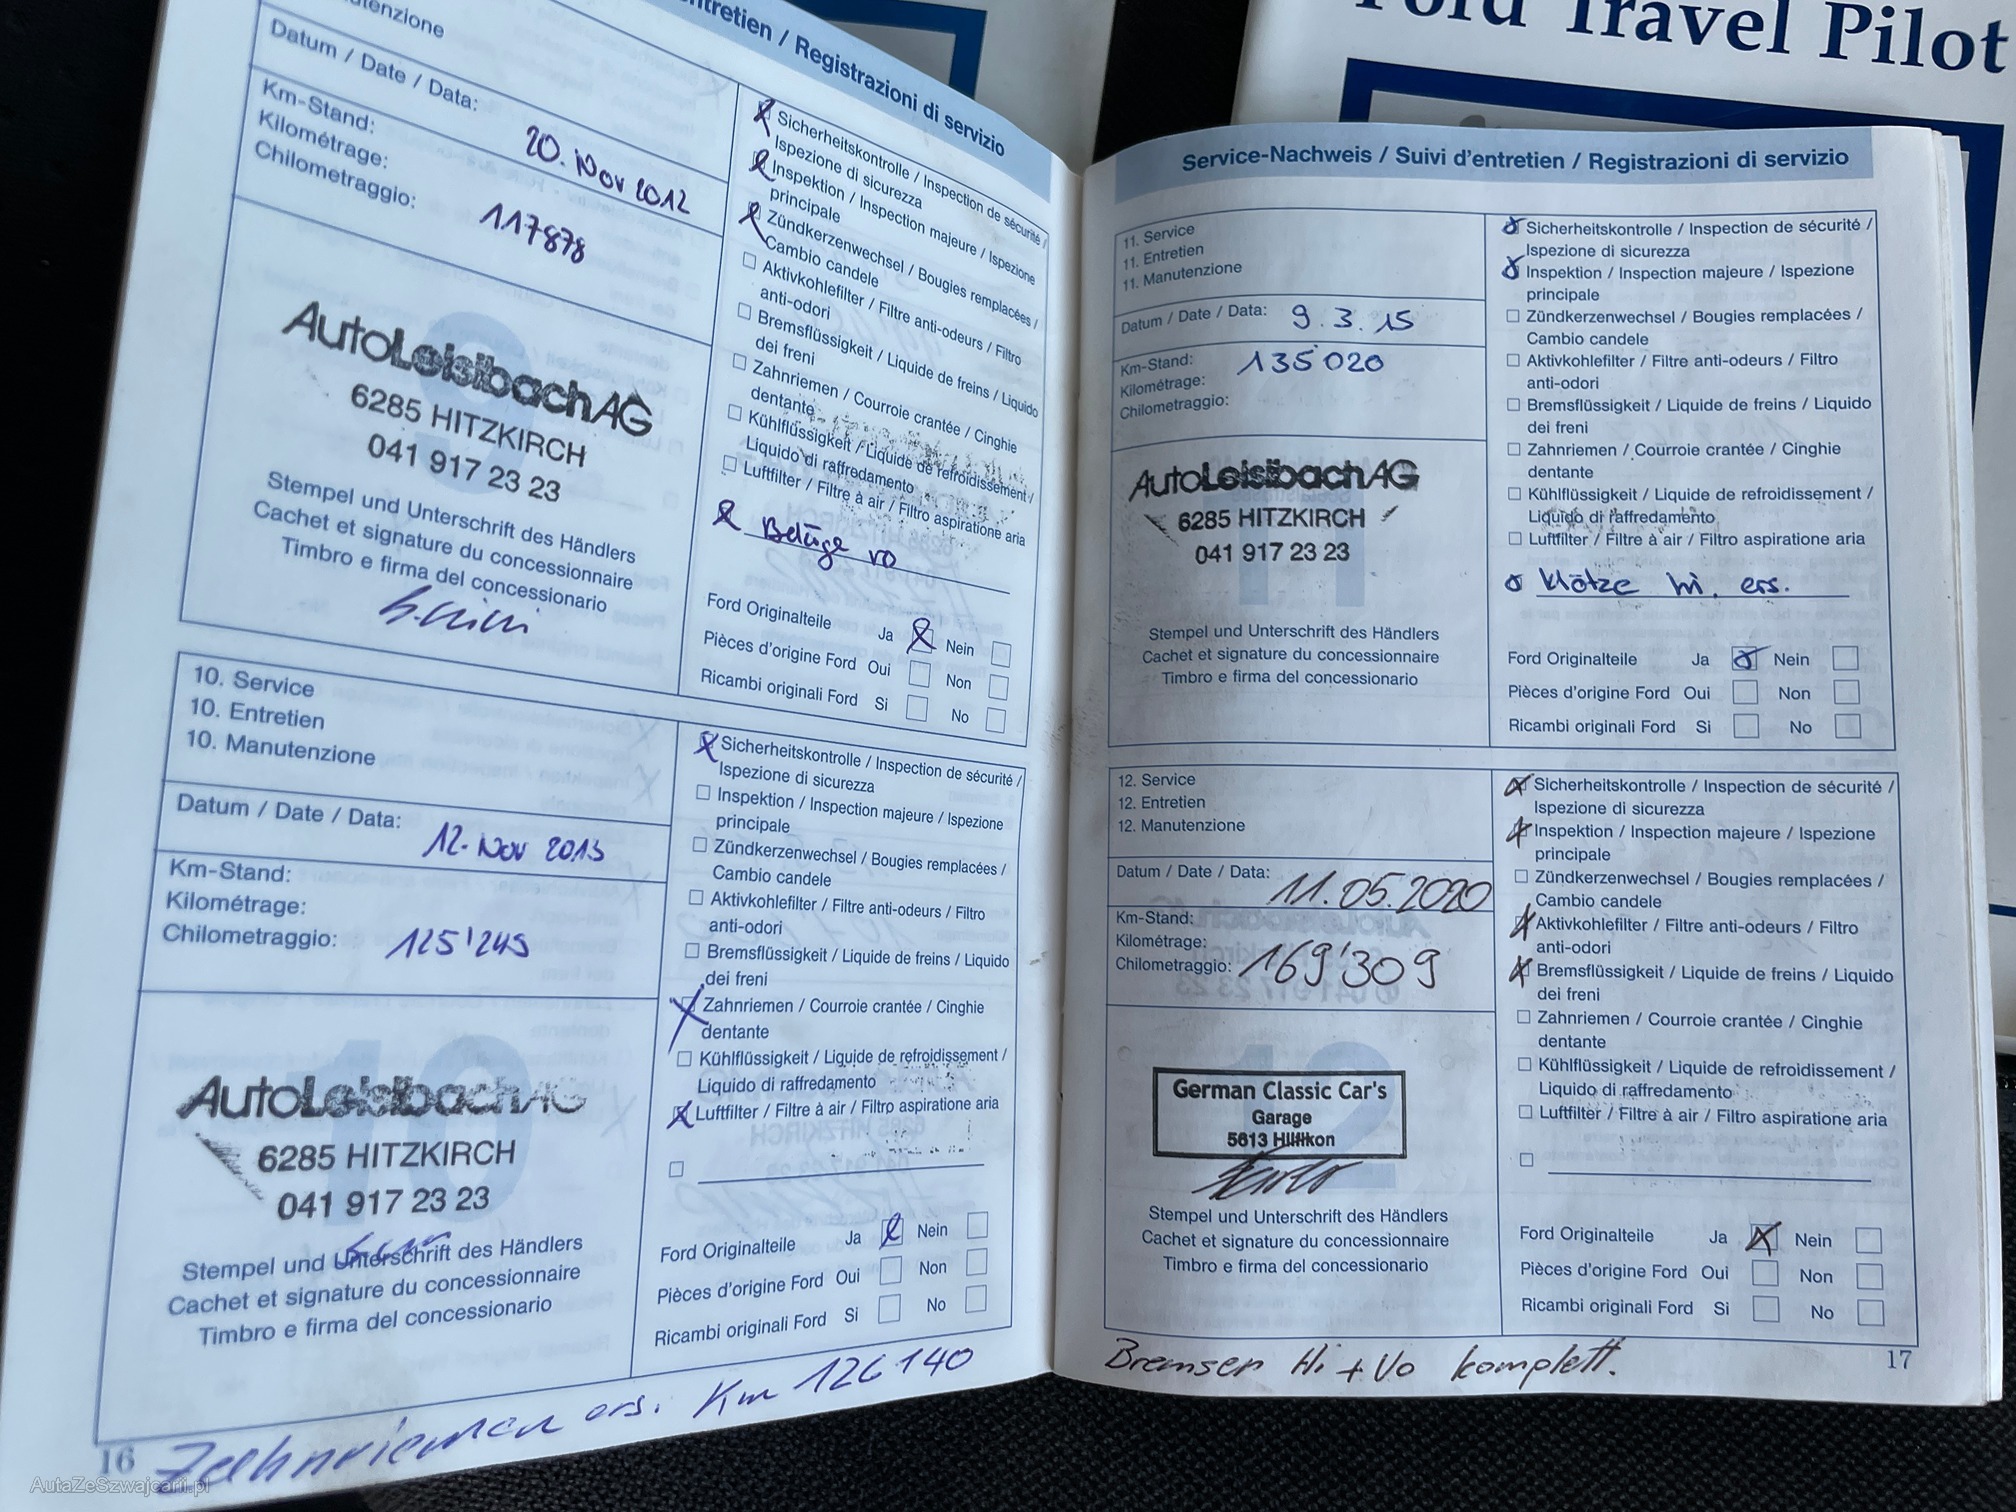 Ford Travel Pilot
entretien / Registrazioni di servizio
Datum / Date / Data: 20. Nov 2012
Km-Stand:
Kilométrage:
Chilometraggio: 117878
AutoLeisibachAG
6285 HITZKIRCH
041 917 23 23
Stempel und Unterschrift des Händlers
Cachet et signature du concessionnaire
Timbro e firma del concessionario
Sicherheitskontrolle / Inspection de sécurité /
Ispezione di sicurezza
Inspektion / Inspection majeure / Ispezione
principale
Zündkerzenwechsel / Bougies remplacées /
Cambio candele
Aktivkohlefilter / Filtre anti-odeurs / Filtro
anti-odori
Bremsflüssigkeit / Liquide de freins / Liquido
dei freni
Zahnriemen / Courroie crantée / Cinghie
dentante
Kühlflüssigkeit / Liquide de refroidissement /
Liquido di raffredamento
Luftfilter / Filtre à air / Filtro aspiratione aria
Beläge vo
Ford Originalteile Ja Nein
Pièces d'origine Ford Oui Non
Ricambi originali Ford Si No
10. Service
10. Entretien
10. Manutenzione
Datum / Date / Data: 12. Nov 2013
Km-Stand:
Kilométrage:
Chilometraggio: 125'245
AutoLeisibachAG
6285 HITZKIRCH
041 917 23 23
Stempel und Unterschrift des Händlers
Cachet et signature du concessionnaire
Timbro e firma del concessionario
Sicherheitskontrolle / Inspection de sécurité /
Ispezione di sicurezza
Inspektion / Inspection majeure / Ispezione
principale
Zündkerzenwechsel / Bougies remplacées /
Cambio candele
Aktivkohlefilter / Filtre anti-odeurs / Filtro
anti-odori
Bremsflüssigkeit / Liquide de freins / Liquido
dei freni
Zahnriemen / Courroie crantée / Cinghie
dentante
Kühlflüssigkeit / Liquide de refroidissement /
Liquido di raffredamento
Luftfilter / Filtre à air / Filtro aspiratione aria
Ford Originalteile Ja Nein
Pièces d'origine Ford Oui Non
Ricambi originali Ford Si No
Zahnriemen ers. Km 126140
16
Service-Nachweis / Suivi d'entretien / Registrazioni di servizio
11. Service
11. Entretien
11. Manutenzione
Datum / Date / Data: 9.3.15
Km-Stand: 135'020
Kilométrage:
Chilometraggio:
AutoLeisibachAG
6285 HITZKIRCH
041 917 23 23
Stempel und Unterschrift des Händlers
Cachet et signature du concessionnaire
Timbro e firma del concessionario
Sicherheitskontrolle / Inspection de sécurité /
Ispezione di sicurezza
Inspektion / Inspection majeure / Ispezione
principale
Zündkerzenwechsel / Bougies remplacées /
Cambio candele
Aktivkohlefilter / Filtre anti-odeurs / Filtro
anti-odori
Bremsflüssigkeit / Liquide de freins / Liquido
dei freni
Zahnriemen / Courroie crantée / Cinghie
dentante
Kühlflüssigkeit / Liquide de refroidissement /
Liquido di raffredamento
Luftfilter / Filtre à air / Filtro aspiratione aria
Klötze hi. ers.
Ford Originalteile Ja Nein
Pièces d'origine Ford Oui Non
Ricambi originali Ford Si No
12. Service
12. Entretien
12. Manutenzione
Datum / Date / Data: 11.05.2020
Km-Stand:
Kilométrage:
Chilometraggio: 169'309
German Classic Car's
Garage
5613 Hilfikon
Stempel und Unterschrift des Händlers
Cachet et signature du concessionnaire
Timbro e firma del concessionario
Sicherheitskontrolle / Inspection de sécurité /
Ispezione di sicurezza
Inspektion / Inspection majeure / Ispezione
principale
Zündkerzenwechsel / Bougies remplacées /
Cambio candele
Aktivkohlefilter / Filtre anti-odeurs / Filtro
anti-odori
Bremsflüssigkeit / Liquide de freins / Liquido
dei freni
Zahnriemen / Courroie crantée / Cinghie
dentante
Kühlflüssigkeit / Liquide de refroidissement /
Liquido di raffredamento
Luftfilter / Filtre à air / Filtro aspiratione aria
Ford Originalteile Ja Nein
Pièces d'origine Ford Oui Non
Ricambi originali Ford Si No
Bremsen Hi + Vo komplett.
17
AutaZeSzwajcarii.pl